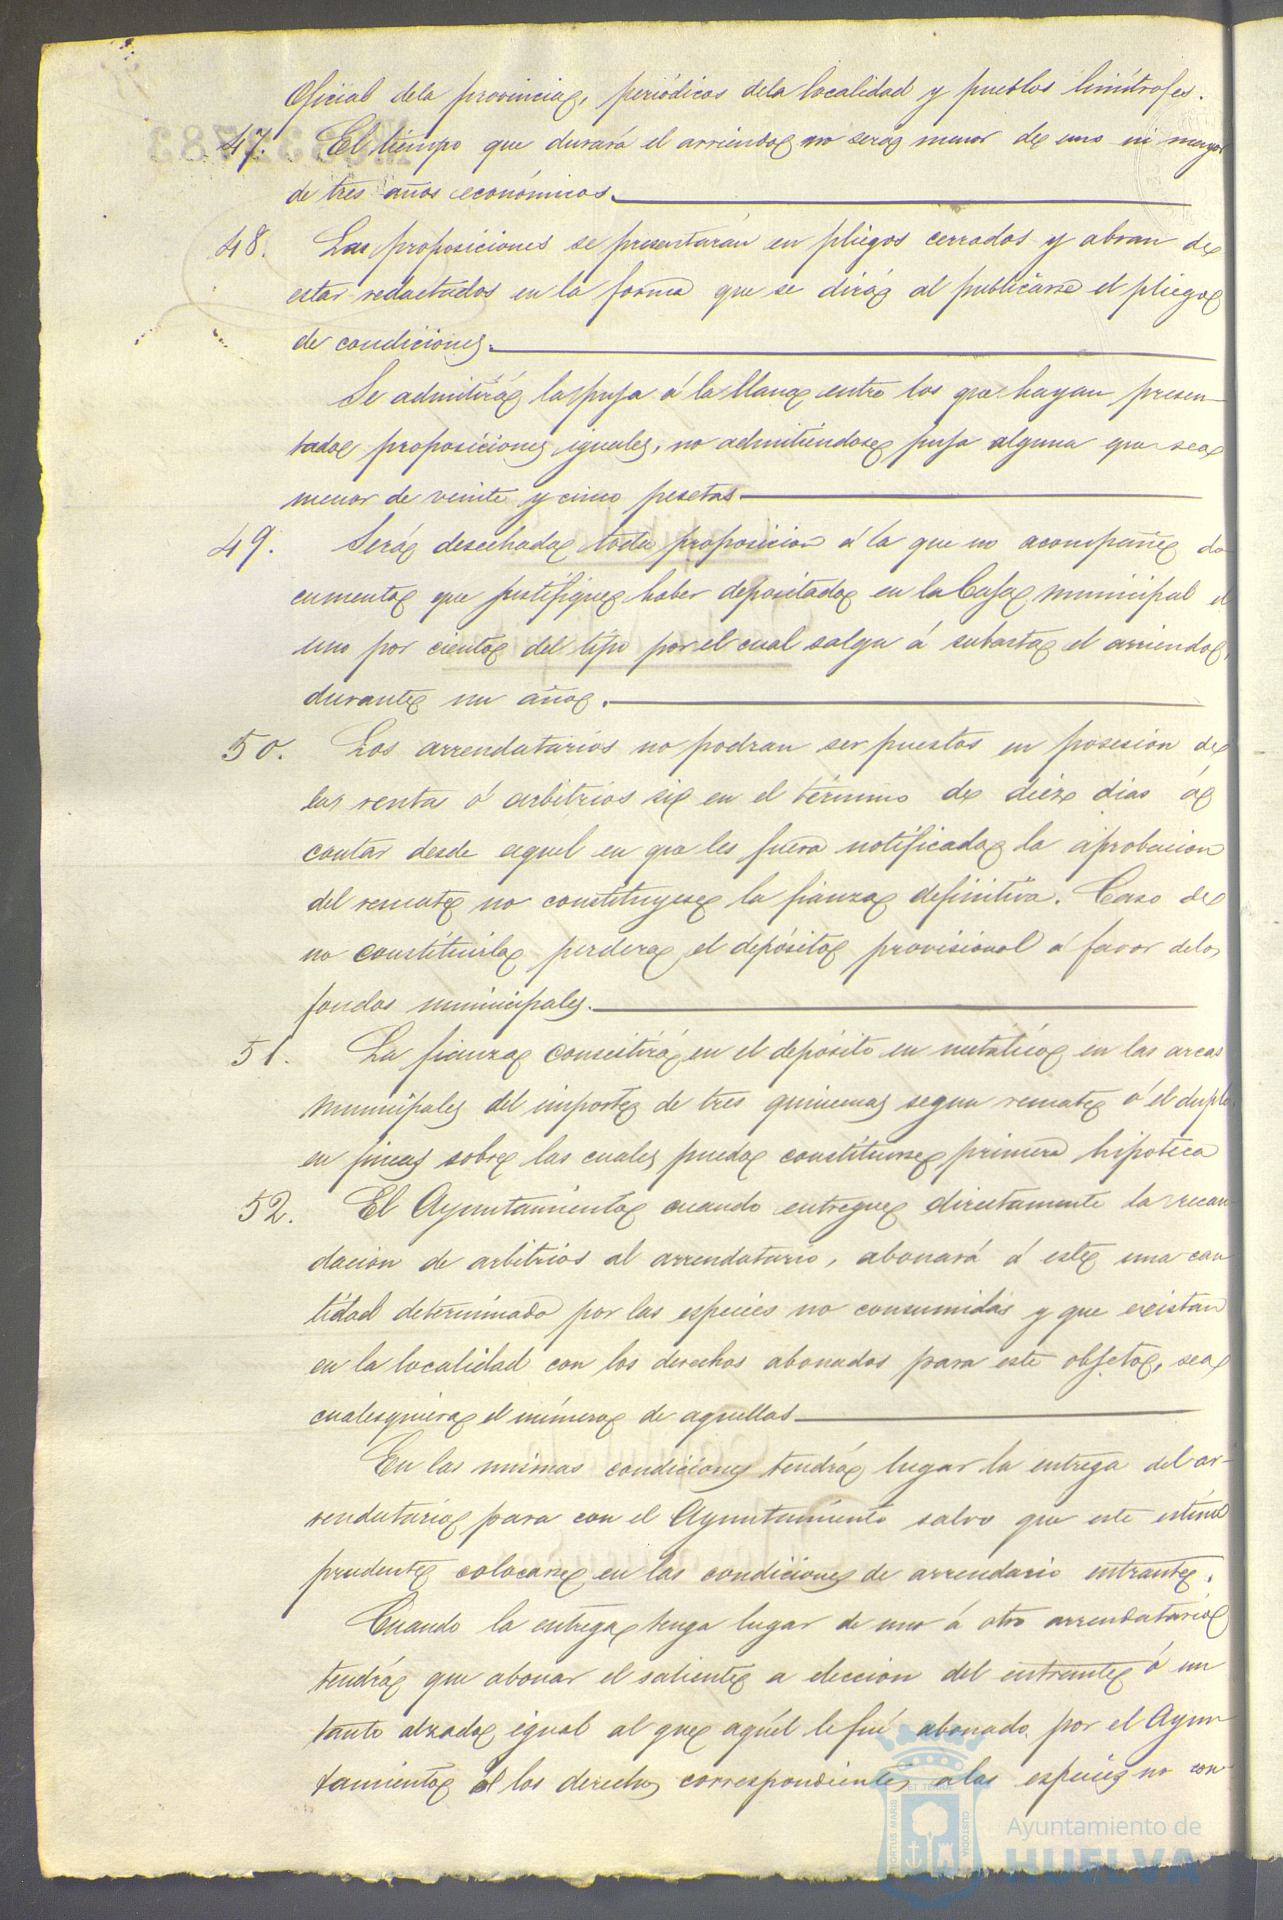 Oficial dela provincia, periódicos dela localidad y pueblos limítrofes.
47. El tiempo que durará el arriendo no será menor de uno ni mayor
de tres años económicos.
48. Las proposiciones se presentarán en pliegos cerrados y abran de
estar redactados en la forma que se dirá al publicarse el pliego
de condiciones.
Se admitirá la puja á la llana entre los que hayan presen-
tado proposiciones iguales, no admitiéndose puja alguna que sea
menor de veinte y cinco pesetas
49. Será desechada toda proposicion á la que no acompañe do
cumento que justifique haber depositado en la Caja municipal el
uno por ciento del tipo por el cual salga á subasta el arriendo,
durante un año.
50. Los arrendatarios no podran ser puestos en posesion de
las renta ó arbitrios sie en el término de dieze dias á
contar desde aquel en que les fuera notificada la aprobacion
del remate no constituyese la fianza definitiva. Caso de
no constituirla perdera el depósito provisional á favor delos
fondos municipales.
51. La fianza consistirá en el depósito en metálico en las arcas
municipales del importe de tres quincenas segun remate ó el duplo
en fincas sobre las cuales pueda constituirse primera hipoteca
52. El Ayuntamiento cuando entregue directamente la recau-
dacion de arbitrios al arrendatario, abonará á este una can
tidad determinada por las especies no consumidas y que existan
en la localidad con los derechos abonados para este objeto, sea
cualesquiera el número de aquellas
En las mismas condiciones tendrá lugar la entrega del ar-
rendatario para con el Ayuntamiento salvo que este estime
prudente colocarse en las condiciones de arrendario entrante.
Cuando la entrega tenga lugar de uno á otro arrendatario
tendrá que abonar el saliente a eleccion del entrante ó un
tanto alzado igual al que aquél le fué abonado por el Ayun-
tamiento ó los derechos correspondientes alas especies no con-
Ayuntamiento de
HUELVA